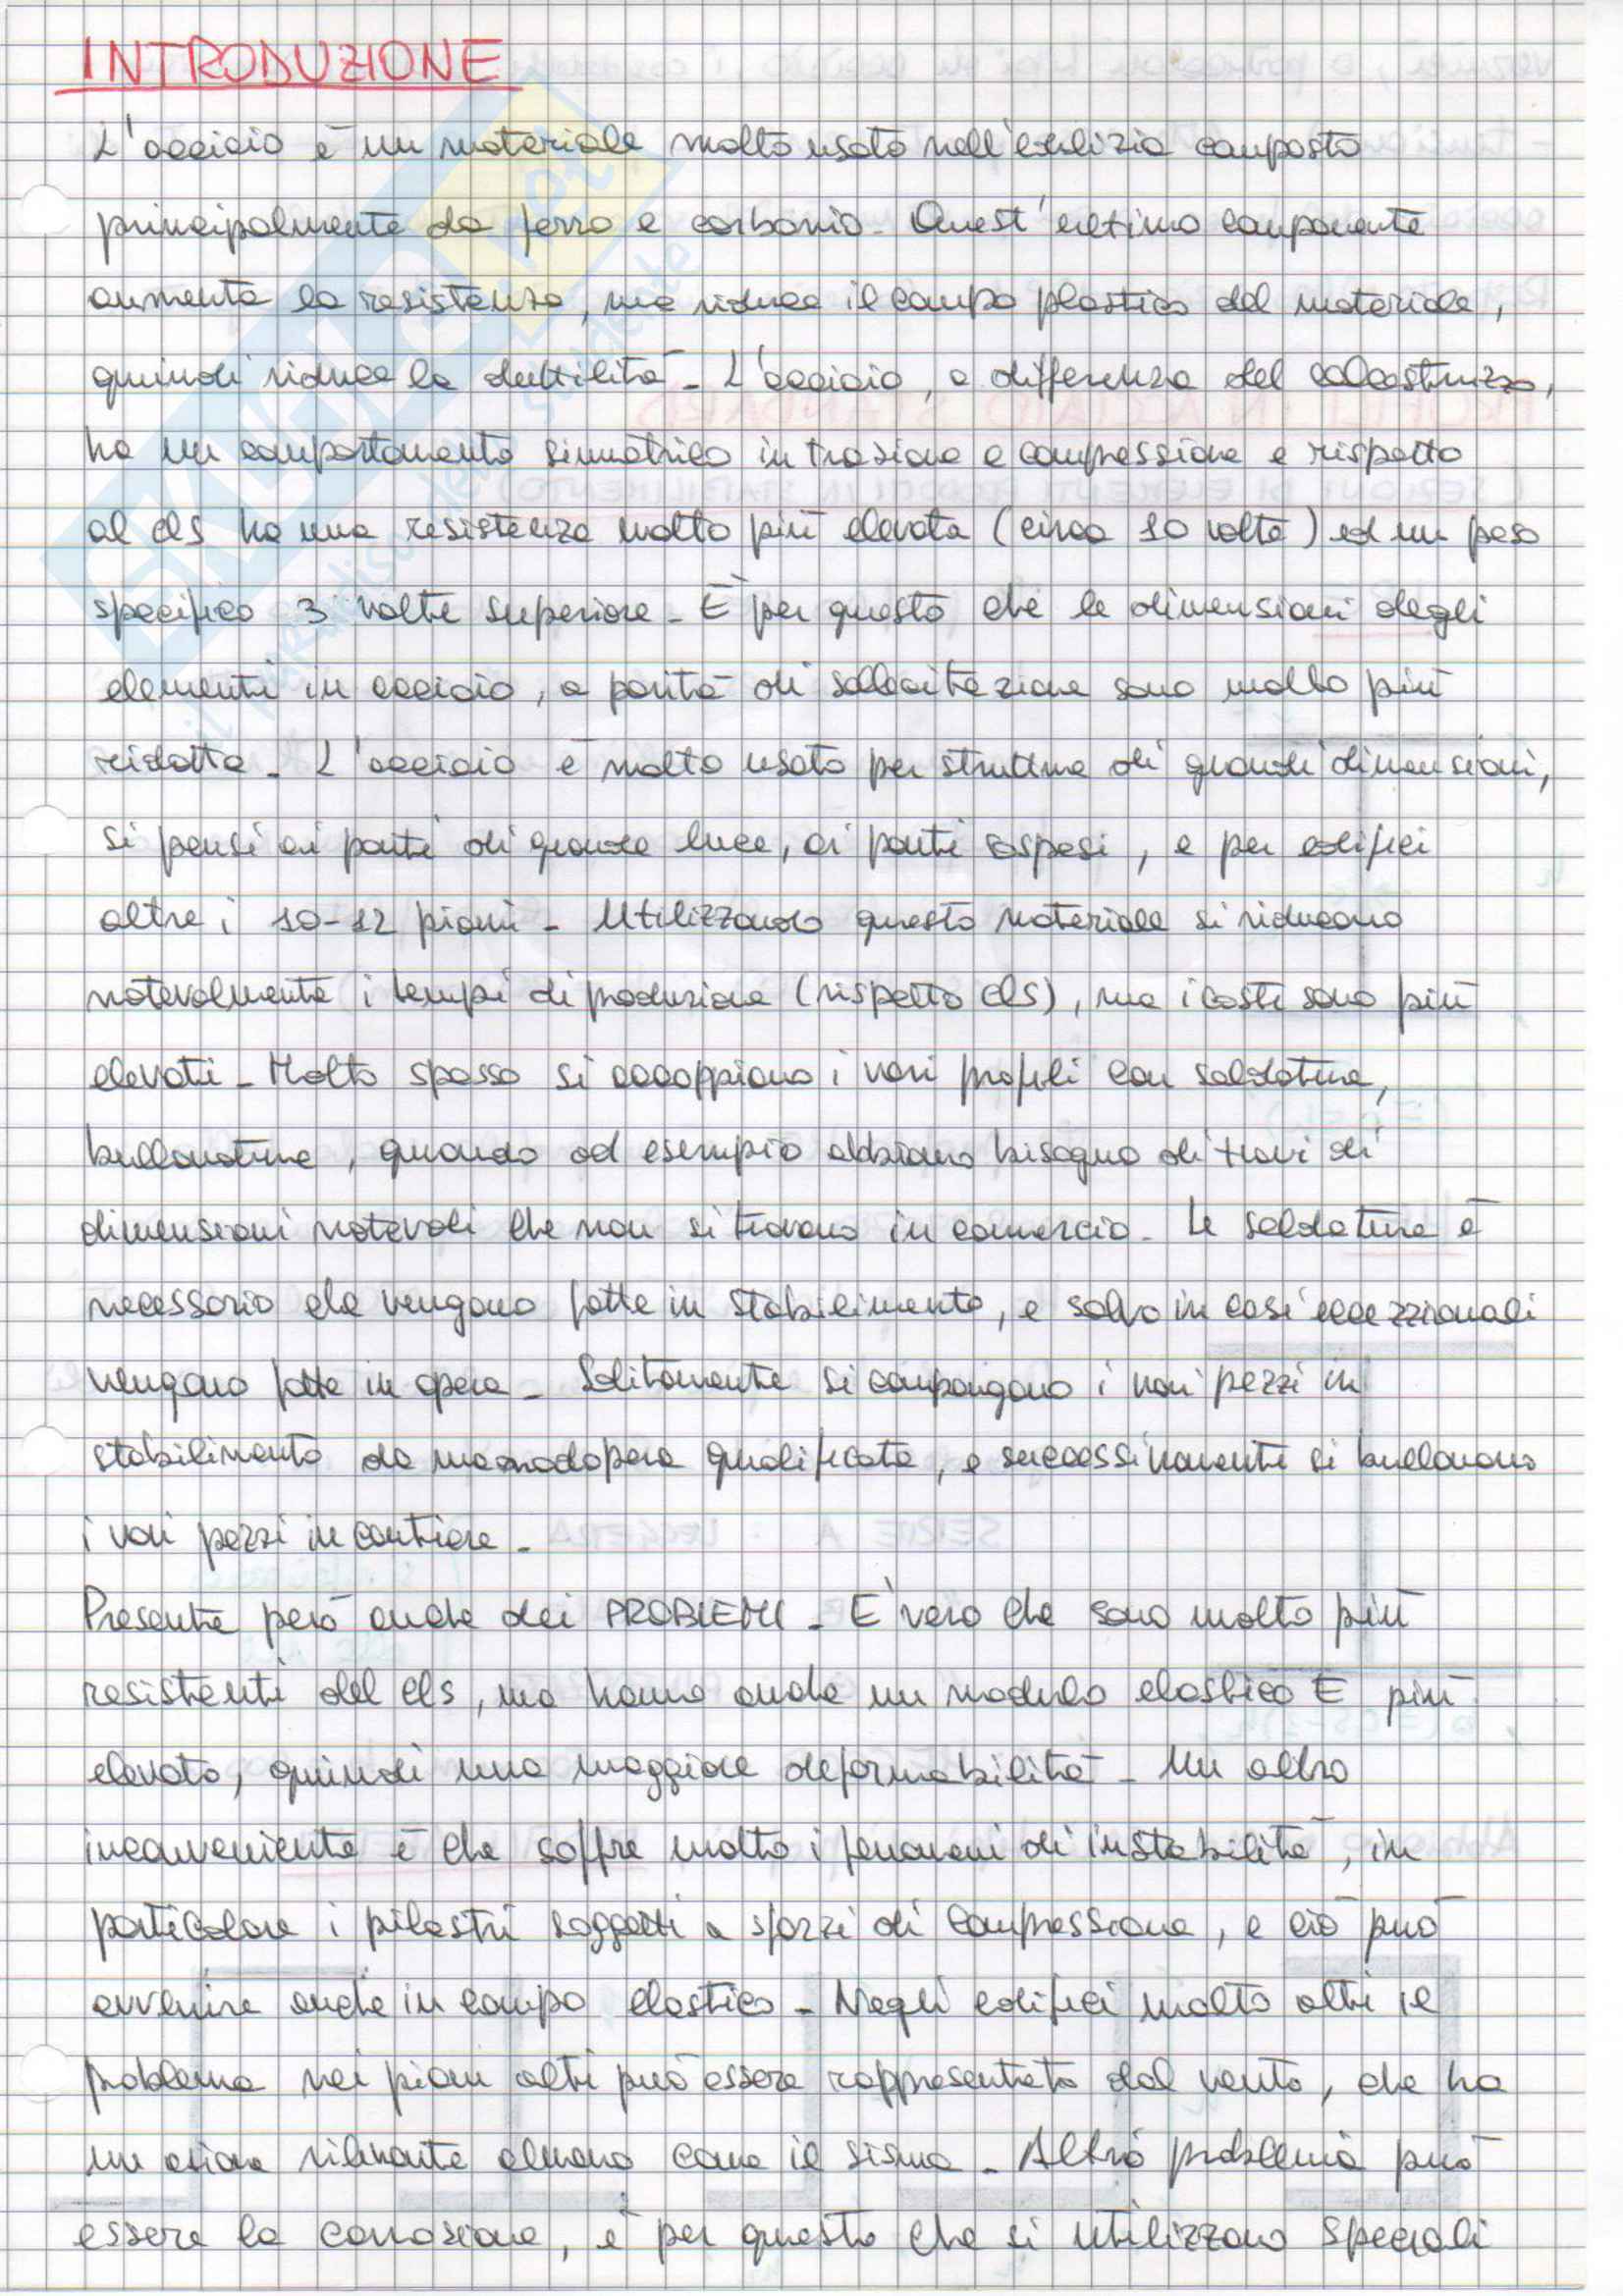 INTRODUZIONE
L'acciaio è un materiale molto usato nell'edilizia composto
principalmente da ferro e carbonio. Quest'ultimo componente
aumenta la resistenza, ma riduce il campo plastico del materiale,
quindi riduce la duttilità. L'acciaio, a differenza del calcestruzzo,
ha un comportamento simmetrico in trazione e compressione e rispetto
al cls ha una resistenza molto più elevata (circa 10 volte) ed un peso
specifico 3 volte superiore. È per questo che le dimensioni degli
elementi in acciaio, a parità di sollecitazione sono molto più
ridotte. L'acciaio è molto usato per strutture di grandi dimensioni,
si pensi ai ponti di grande luce, ai ponti sospesi, e per edifici
oltre i 10-12 piani. Utilizzando questo materiale si riducono
notevolmente i tempi di produzione (rispetto cls), ma i costi sono più
elevati. Molto spesso si accoppiano i vari profili con saldature,
bullonature, quando ad esempio abbiamo bisogno di travi di
dimensioni notevoli che non si trovano in comercio. Le saldature è
necessario che vengano fatte in stabilimento, e salvo in casi eccezzionali
vengano fatte in opera. Solitamente si compongono i vari pezzi in
stabilimento da manodopera qualificata, e successivamente si bullonano
i vari pezzi in cantiere.
Presenta però anche dei PROBLEMI. E' vero che sono molto più
resistenti del cls, ma hanno anche un modulo elastico E più
elevato, quindi una maggiore deformabilità. Un altro
inconveniente è che soffre molto i fenomeni di instabilità, in
particolare i pilastri soggetti a sforzi di compressione, e ciò può
avvenire anche in campo elastico. Negli edifici molto alti il
problema nei piani alti può essere rappresentato dal vento, che ha
un azione rilevante almeno come il sisma. Altro problema può
essere la corrosione, è per questo che si utilizzano speciali